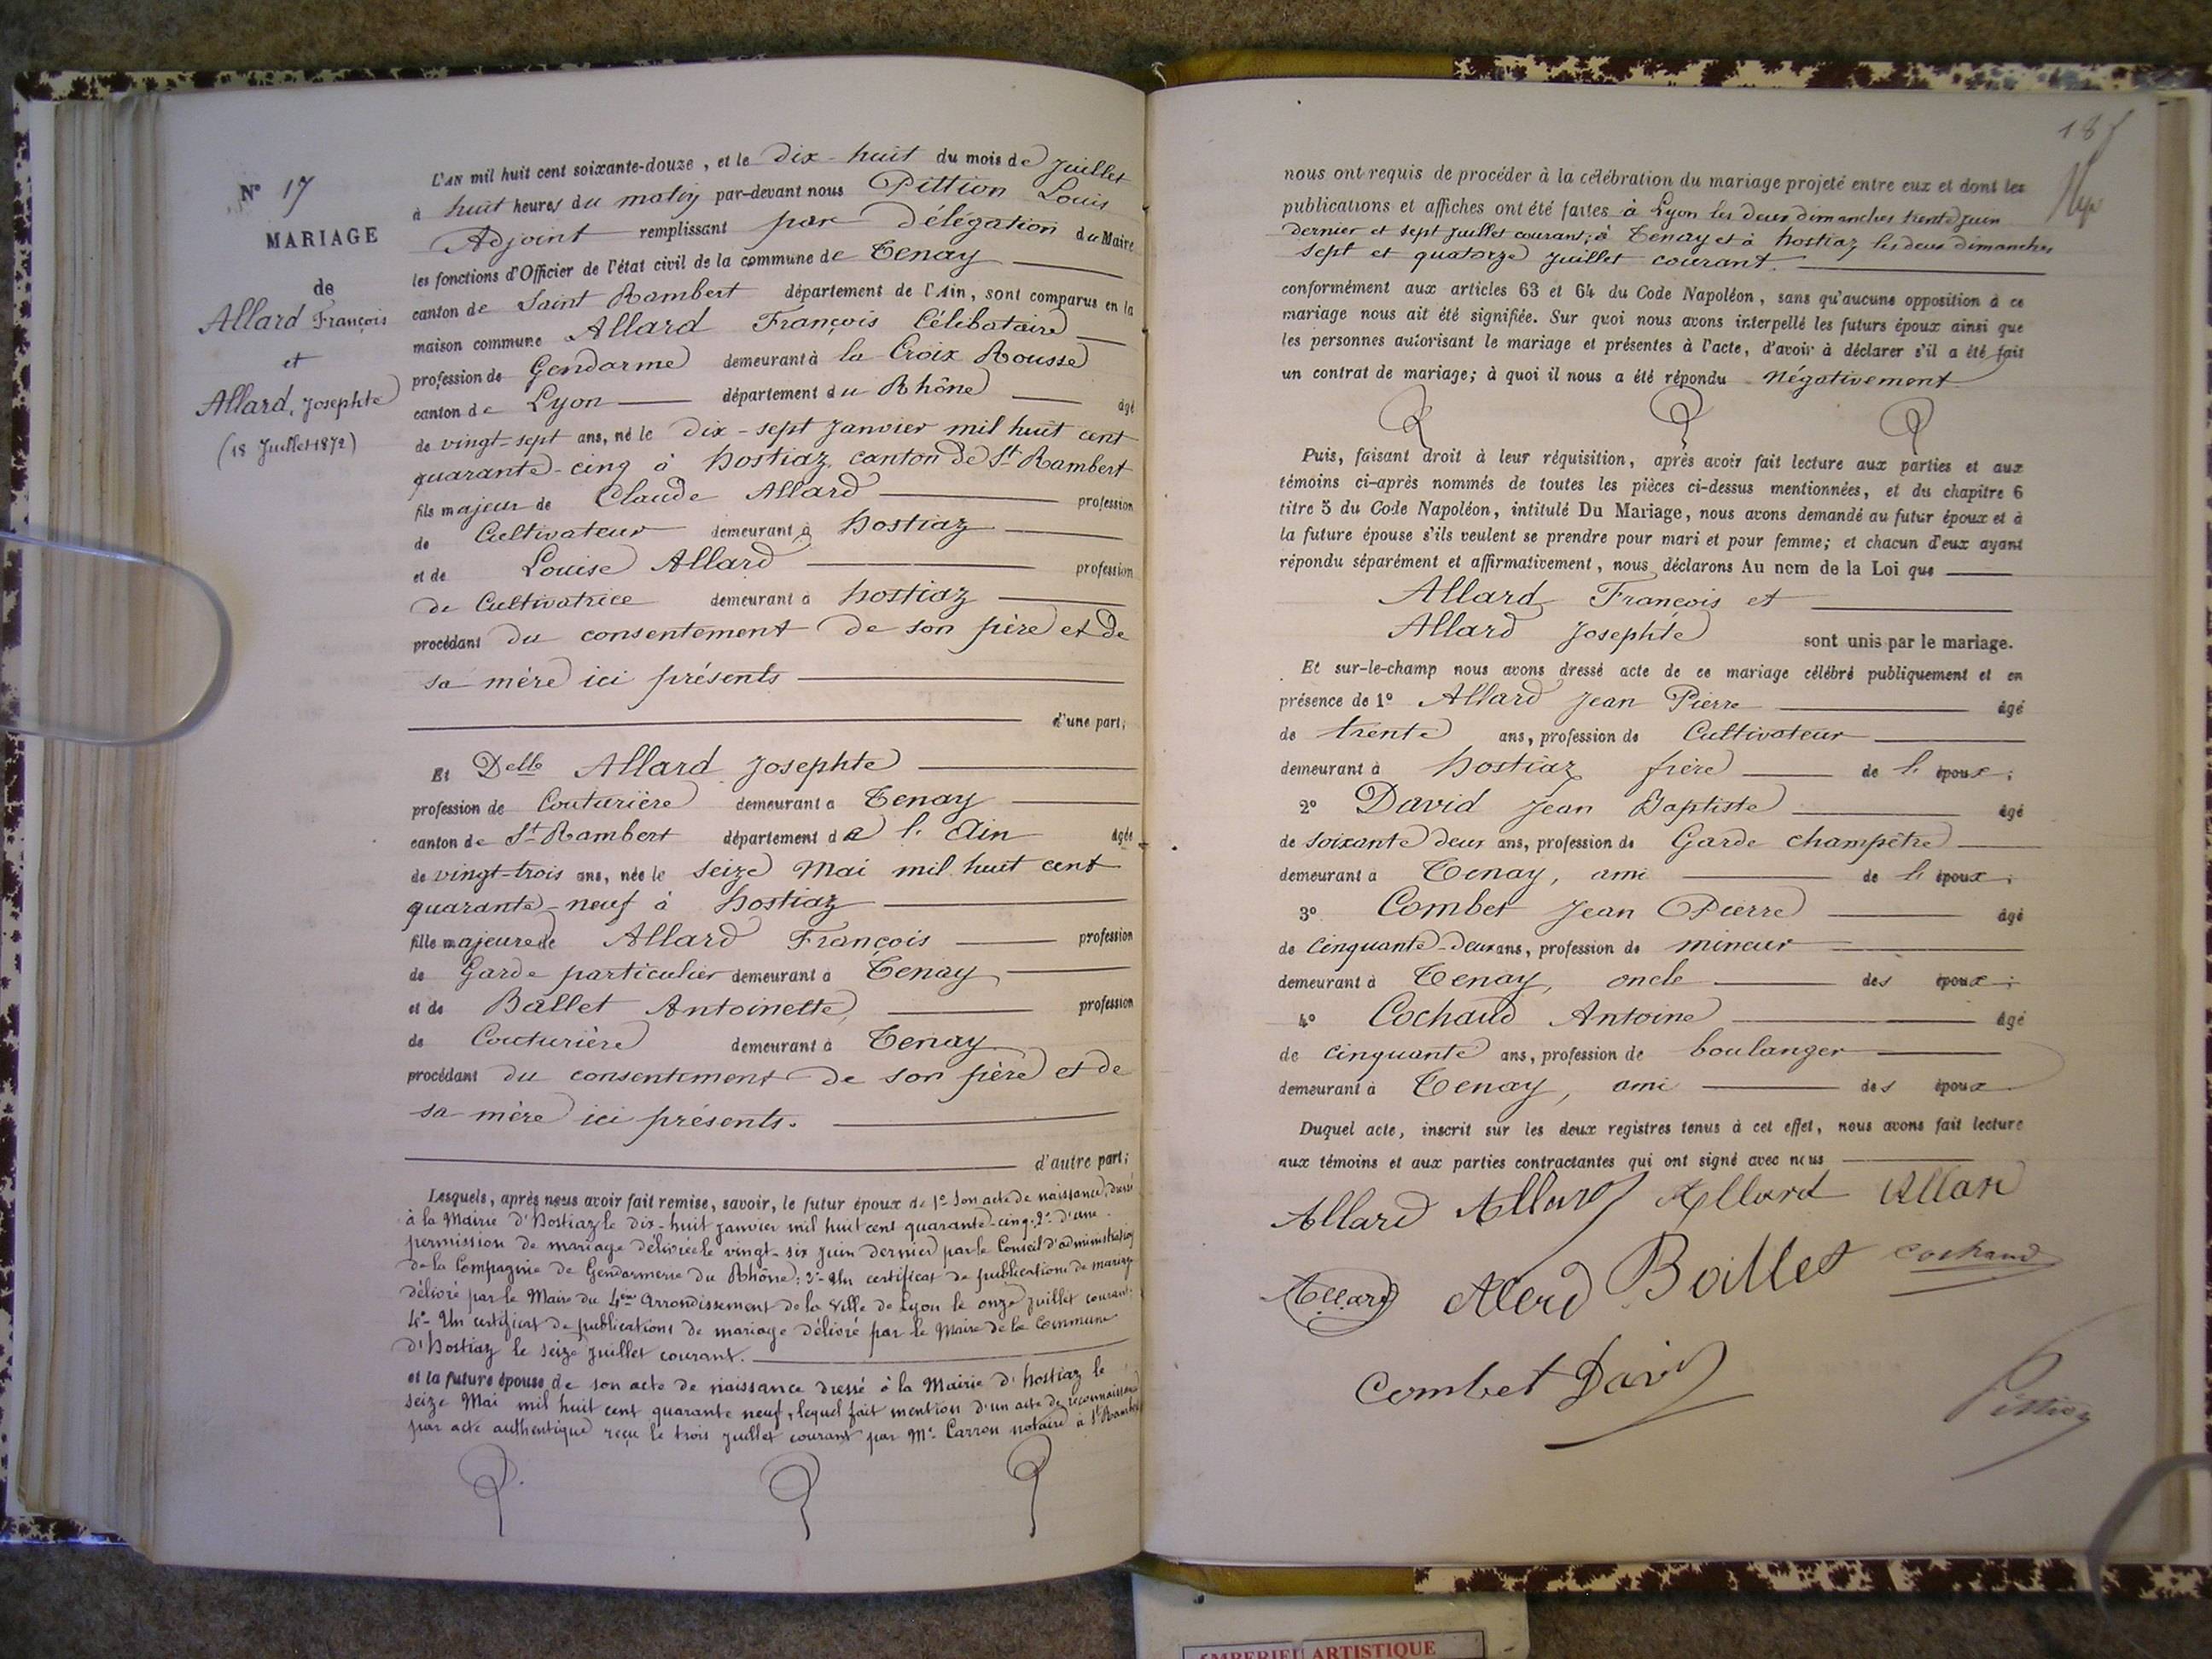 N° 17
MARIAGE
de
Allard François
et
Allard, Josephte
(18 Juillet 1872)
L'AN mil huit cent soixante-douze, et le dix-huit du mois de Juillet
à huit heures du matin par-devant nous Pittion Louis
Adjoint remplissant par Délégation du Maire
les fonctions d'Officier de l'état civil de la commune de Tenay
canton de Saint Rambert département de l'Ain, sont comparus en la
maison commune Allard François Célibataire
profession de Gendarme demeurant à la Croix Rousse
canton de Lyon département du Rhône âgé
de vingt-sept ans, né le dix-sept Janvier mil huit cent
quarante-cinq à hostiaz canton de St Rambert
fils majeur de Claude Allard profession
de Cultivateur demeurant à hostiaz
et de Louise Allard profession
de Cultivatrice demeurant à hostiaz
procédant du consentement de son père et de
sa mère ici présents
d'une part;
Et Delle Allard Josephte
profession de Couturière demeurant à Tenay
canton de St Rambert département de l'Ain âgée
de vingt-trois ans, née le seize Mai mil huit cent
quarante-neuf à hostiaz
fille majeure de Allard François profession
de Garde particulier demeurant à Tenay
et de Ballet Antoinette, profession
de Couturière demeurant à Tenay
procédant du consentement de son père et de
sa mère ici présents.
d'autre part;
Lesquels, après nous avoir fait remise, savoir, le futur époux de 1° Son acte de naissance, dressé
à la Mairie d'Hostiaz le dix-huit janvier mil huit cent quarante-cinq. 2° d'une
permission de mariage délivrée le vingt-six Juin dernier par le Conseil d'administration
de la Compagnie de Gendarmerie du Rhône; 3° Un certificat de publications de mariage
délivré par le Maire du 4ème Arrondissement de la Ville de Lyon le onze juillet courant.
4° Un certificat de publications de mariage délivré par le Maire de la Commune
d'Hostiaz le seize juillet courant.
et la future épouse de son acte de naissance dressé à la Mairie d'hostiaz le
seize Mai mil huit cent quarante neuf, lequel fait mention d'un acte de reconnaissance
par acte authentique reçu le trois Juillet courant par Me Carron notaire à St Rambert
187
nous ont requis de procéder à la célébration du mariage projeté entre eux et dont les
publications et affiches ont été faites à Lyon les deux dimanches trente juin
dernier et sept juillet courant; à Tenay et à hostiaz les deux dimanches
sept et quatorze juillet courant.
conformément aux articles 63 et 64 du Code Napoléon, sans qu'aucune opposition à ce
mariage nous ait été signifiée. Sur quoi nous avons interpellé les futurs époux ainsi que
les personnes autorisant le mariage et présentes à l'acte, d'avoir à déclarer s'il a été fait
un contrat de mariage; à quoi il nous a été répondu Négativement
Puis, faisant droit à leur réquisition, après avoir fait lecture aux parties et aux
témoins ci-après nommés de toutes les pièces ci-dessus mentionnées, et du chapitre 6
titre 5 du Code Napoléon, intitulé Du Mariage, nous avons demandé au futur époux et à
la future épouse s'ils veulent se prendre pour mari et pour femme; et chacun d'eux ayant
répondu séparément et affirmativement, nous déclarons Au nom de la Loi que
Allard François et
Allard Josephte sont unis par le mariage.
Et sur-le-champ nous avons dressé acte de ce mariage célébré publiquement et en
présence de 1° Allard Jean Pierre âgé
de trente ans, profession de Cultivateur
demeurant à hostiaz frère de l'époux;
2° David Jean Baptiste âgé
de soixante deux ans, profession de Garde champêtre
demeurant à Tenay, ami de l'époux;
3° Combet Jean Pierre âgé
de Cinquante-deux ans, profession de mineur
demeurant à Tenay, oncle des époux;
4° Cochaud Antoine âgé
de cinquante ans, profession de boulanger
demeurant à Tenay, ami des époux
Duquel acte, inscrit sur les deux registres tenus à cet effet, nous avons fait lecture
aux témoins et aux parties contractantes qui ont signé avec nous
Allard Allard Allard Allard
Allard Allard Ballet Cochaud
Combet David
Pittion
ARTISTIQUE